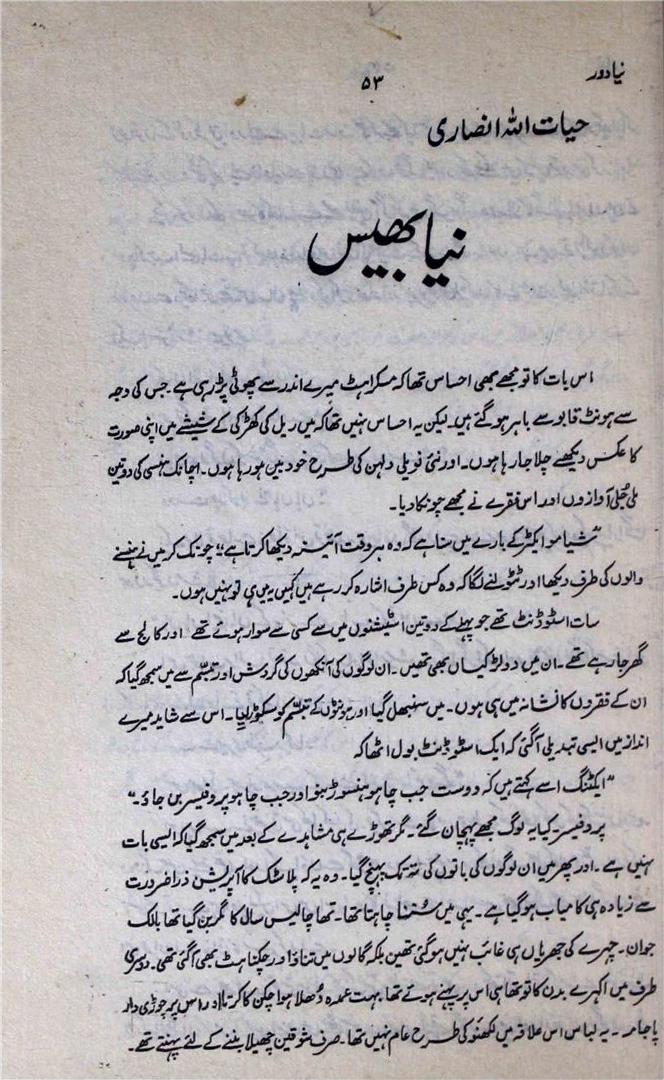 نیا دور
۵۳
حیات اللہ انصاری
نیا بھیس
اس بات کا تو مجھے بھی احساس تھا کہ مسکراہٹ میرے اندر سے پھوٹی پڑ رہی ہے۔ جس کی وجہ
سے ہونٹ قابو سے باہر ہو گئے ہیں۔ لیکن یہ احساس نہیں تھا کہ میں ریل کی کھڑکی کے شیشے میں اپنی صورت
کا عکس دیکھے چلا جا رہا ہوں۔ اور نئی نویلی دلہن کی طرح خود بین ہو رہا ہوں۔ اچانک ہنسی کی دو تین
ملی جلی آوازوں اور اس فقرے نے مجھے چونکا دیا۔
"شیامو ایکٹر کے بارے میں سنا ہے کہ وہ ہر وقت آئینہ دیکھا کرتا ہے" چونک کر میں نے ہنسنے
والوں کی طرف دیکھا اور ٹٹولنے لگا کہ وہ کس طرف اشارہ کر رہے ہیں کہیں یہ میں ہی تو نہیں ہوں۔
سات اسٹوڈنٹ تھے جو پہلے کے دو تین اسٹیشنوں میں سے کسی سے سوار ہوئے تھے اور کالج سے
گھر جا رہے تھے۔ ان میں دو لڑکیاں بھی تھیں۔ ان لوگوں کی آنکھوں کی گردش اور تبسّم سے میں سمجھ گیا کہ
ان کے فقروں کا نشانہ میں ہی ہوں۔ میں سنبھل گیا اور ہونٹوں کے تبسّم کو سکوڑ لیا۔ اس سے شاید میرے
انداز میں ایسی تبدیلی آ گئی کہ ایک اسٹوڈنٹ بول اٹھا کہ
"ایکٹنگ اسے کہتے ہیں کہ دوست جب چاہو ہنسوڑ بنو اور جب چاہو پروفیسر بن جاؤ۔"
پروفیسر۔ کیا یہ لوگ مجھے پہچان گئے۔ مگر تھوڑے ہی مشاہدے کے بعد میں سمجھ گیا کہ ایسی بات
نہیں ہے۔ اور پھر میں ان لوگوں کی باتوں کی تہ تک پہنچ گیا۔ وہ یہ کہ پلاسٹک کا آپریشن ذرا ضرورت
سے زیادہ ہی کامیاب ہو گیا ہے۔ یہی میں سُننا چاہتا تھا۔ تھا چالیس سال کا مگر بن گیا تھا بالک
جوان۔ چہرے کی جھریاں ہی غائب نہیں ہو گئی تھیں بلکہ گالوں میں تناؤ اور چکناہٹ بھی آ گئی تھی۔ دوسری
طرف میں اکہرے بدن کا تو تھا ہی اس پر پہنے ہوئے تھا بہت عمدہ دُھلا ہوا چکن کا کرتا اور اس پر چوڑی دار
پاجامہ۔ یہ لباس اس علاقہ میں لکھنؤ کی طرح عام نہیں تھا۔ صرف شوقین چھیلا بننے کے لئے پہنتے تھے۔